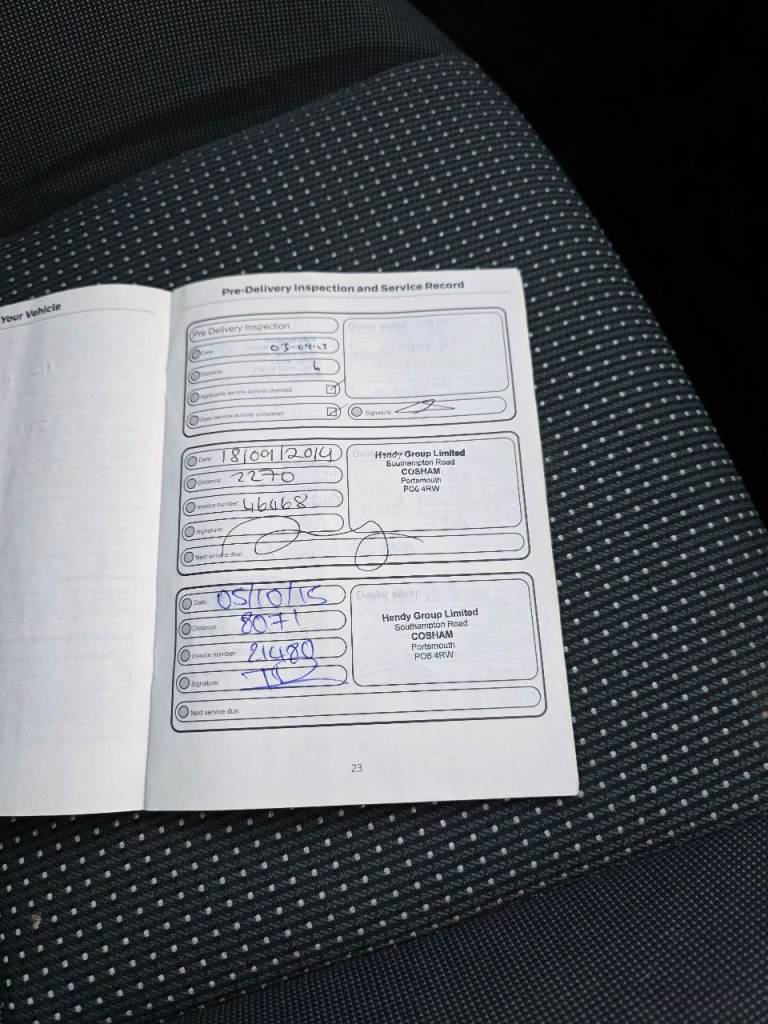 Your Vehicle
Pre-Delivery Inspection and Service Record
Pre Delivery Inspection
Date:
Distance: 6
Applicable service actions checked:
Open service actions completed:
Dealer stamp
Signature:
Date: 18/09/2014
Distance: 2270
Invoice number: 46468
Signature:
Next service due:
Hendy Group Limited
Southampton Road
COSHAM
Portsmouth
PO6 4RW
Date: 05/10/15
Distance: 8071
Invoice number: 21480
Signature:
Next service due:
Dealer stamp
Hendy Group Limited
Southampton Road
COSHAM
Portsmouth
PO6 4RW
23